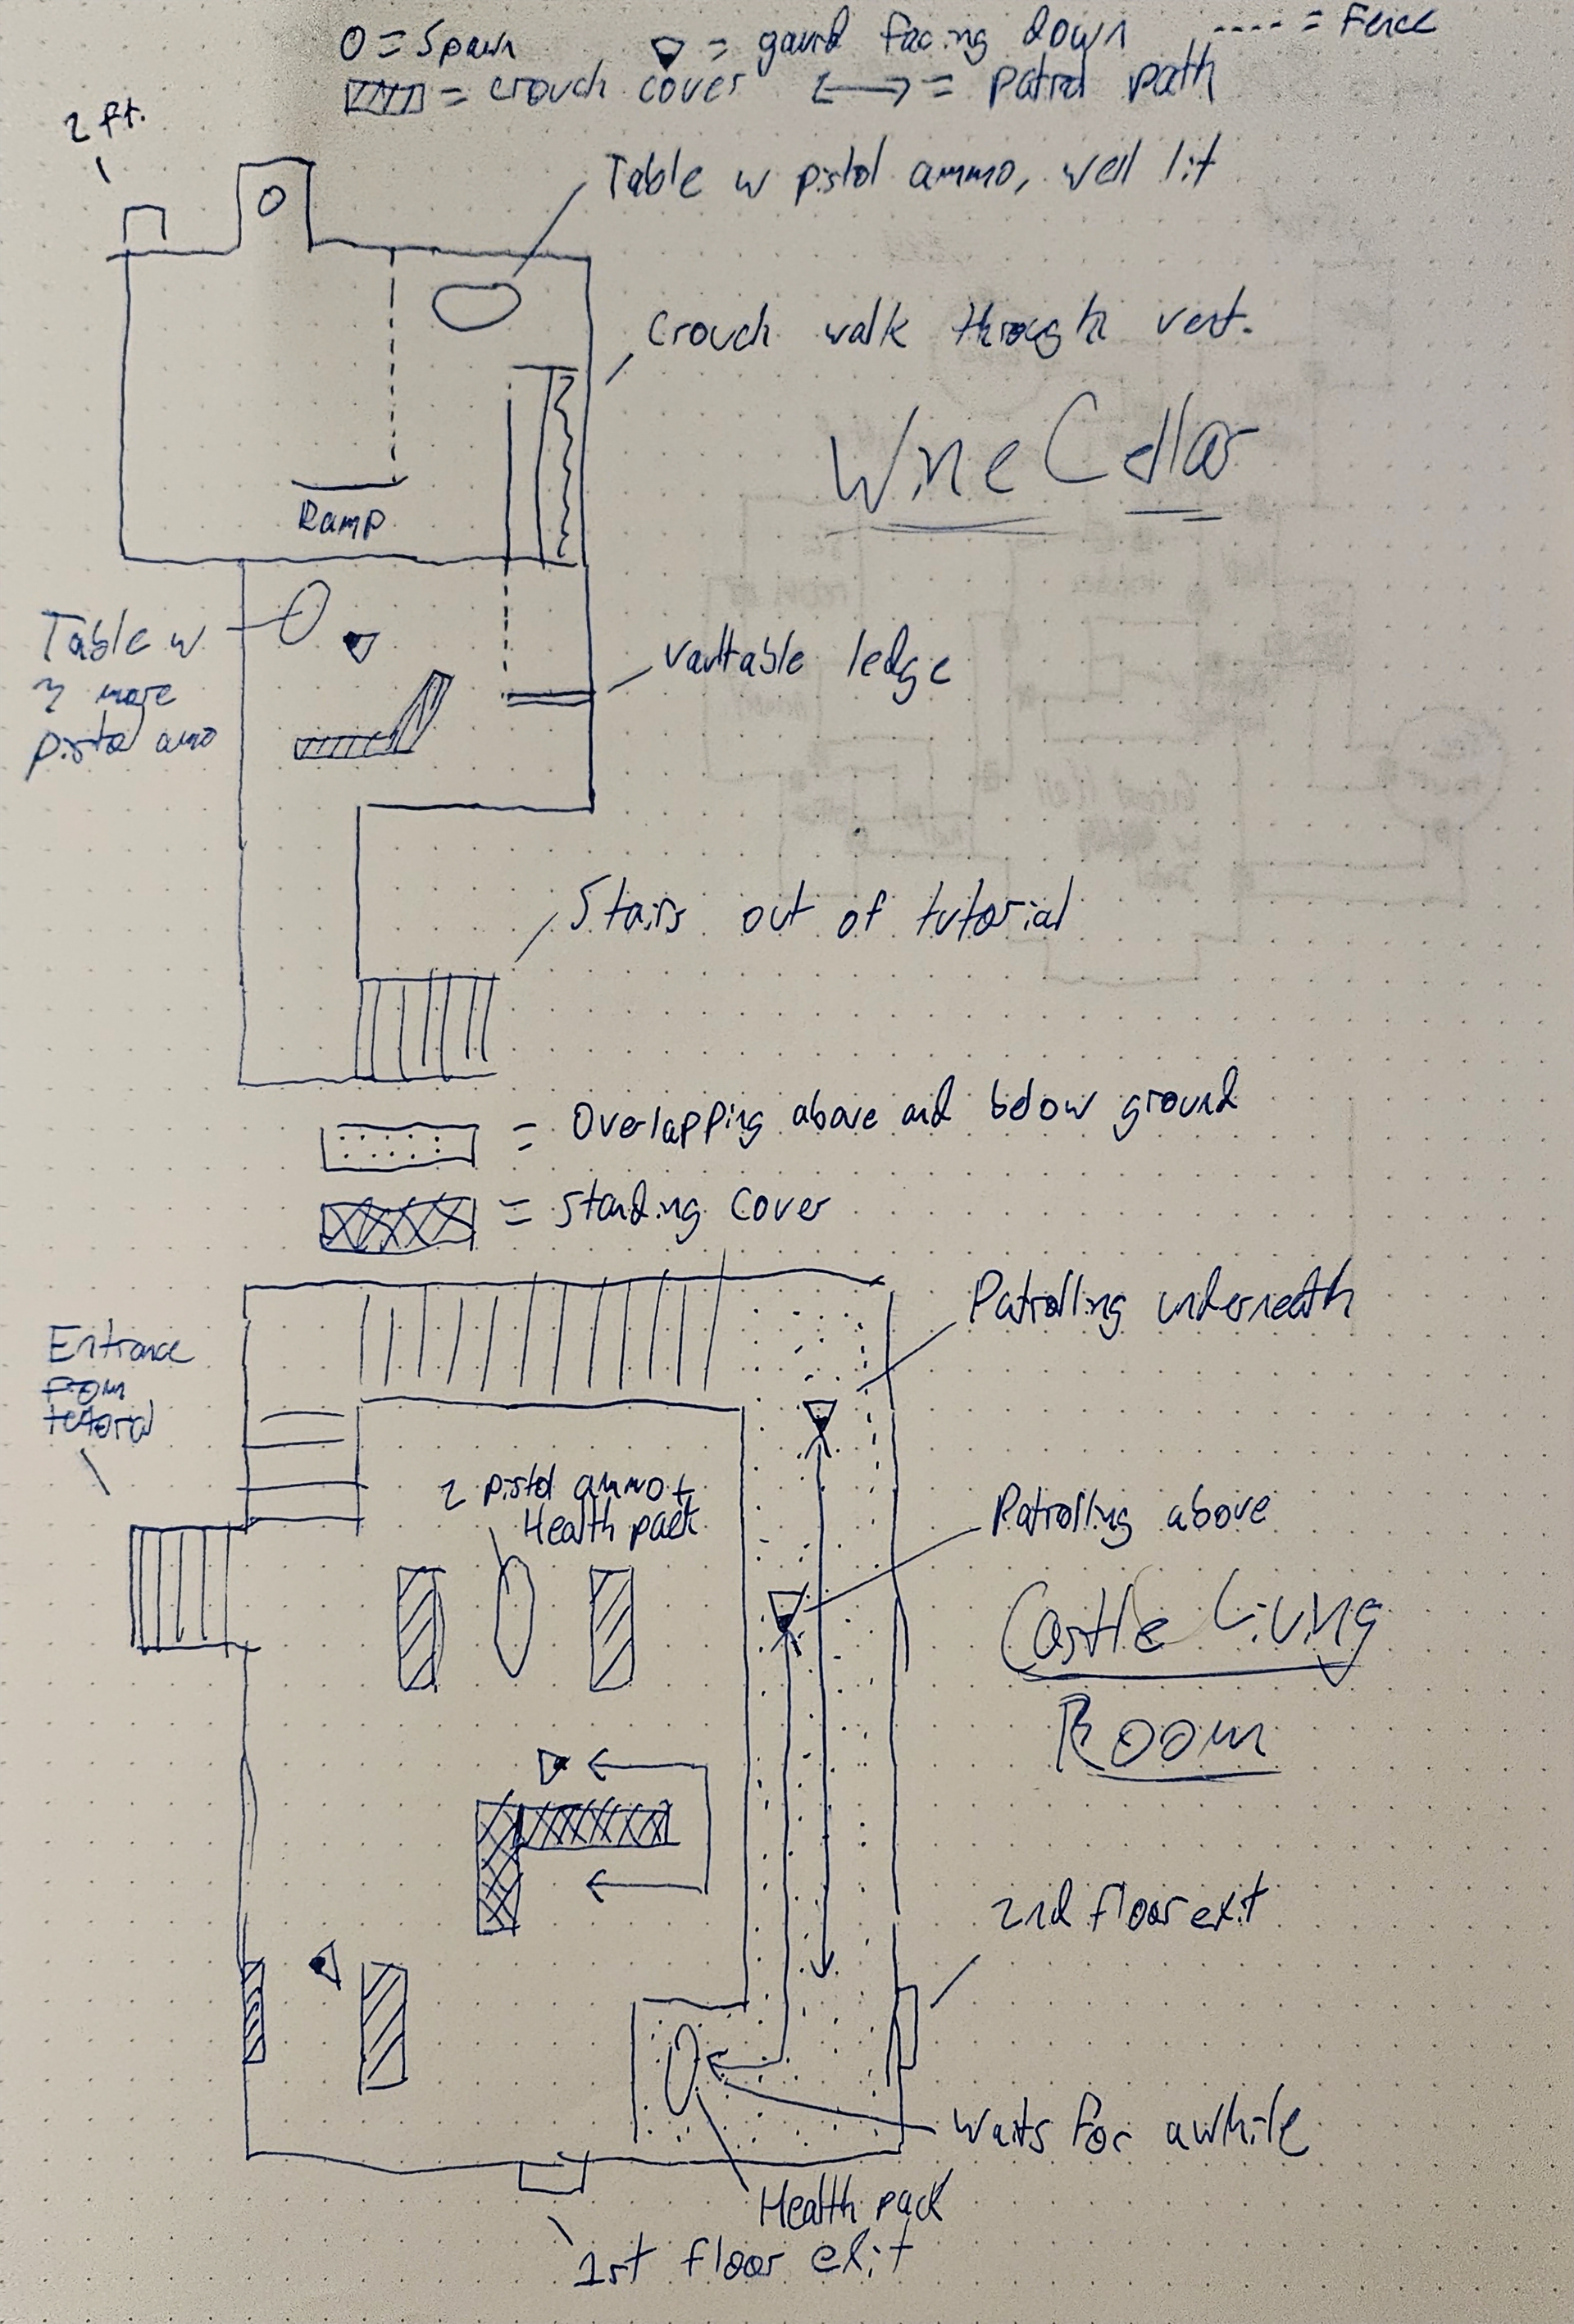 O = Spawn
= gaurd facing down
---- = Fence
= crouch cover
= Patrol path
2 ft.
O
Table w pistol ammo, well lit
Crouch walk through vent.
Wine Cellar
Ramp
Table w
more
pistol amo
vaultable ledge
Stairs out of tutorial
= Overlapping above and below ground
= Standing Cover
Patrolling underneath
Entrance
from
tutorial
2 pistol ammo +
Health pack
Patrolling above
Castle Living
Room
2nd floor exit
Waits for awhile
Health pack
1st floor exit